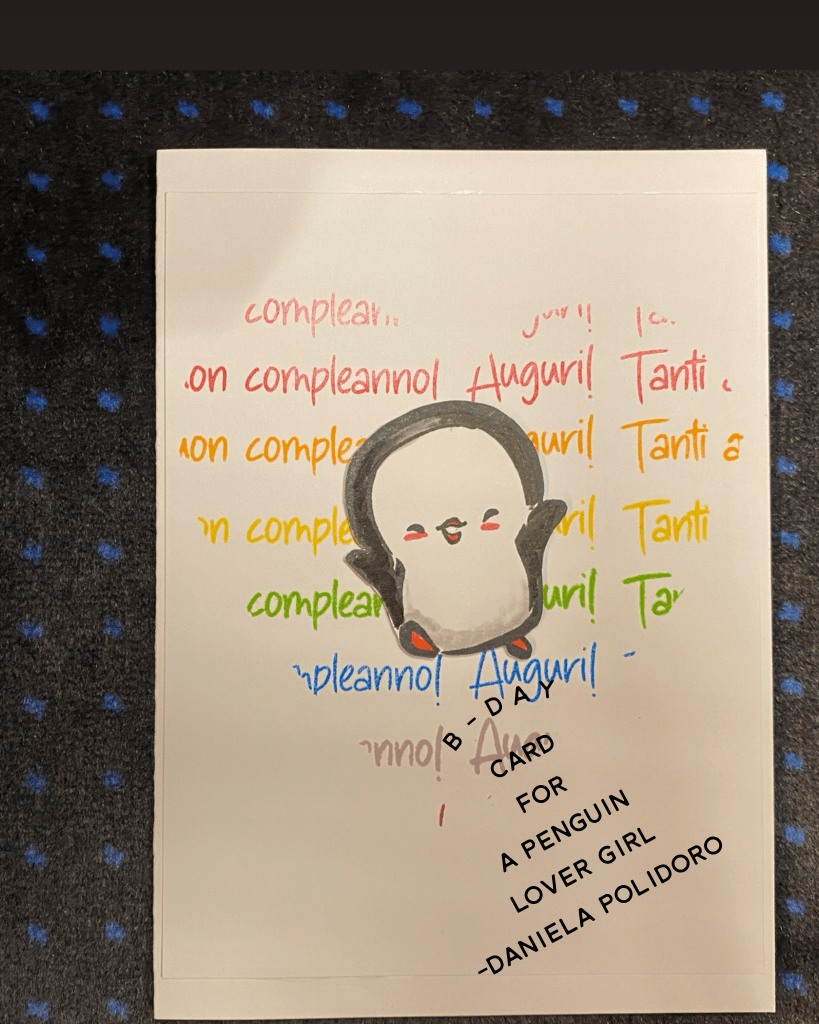 complean
on compleanno! Auguri! Tanti
on comple uri! Tanti a
n comple ril Tanti
complean uri! Ta
pleanno! Auguri!
nno! Aug
B-DAY
CARD
FOR
A PENGUIN
LOVER GIRL
-DANIELA POLIDORO